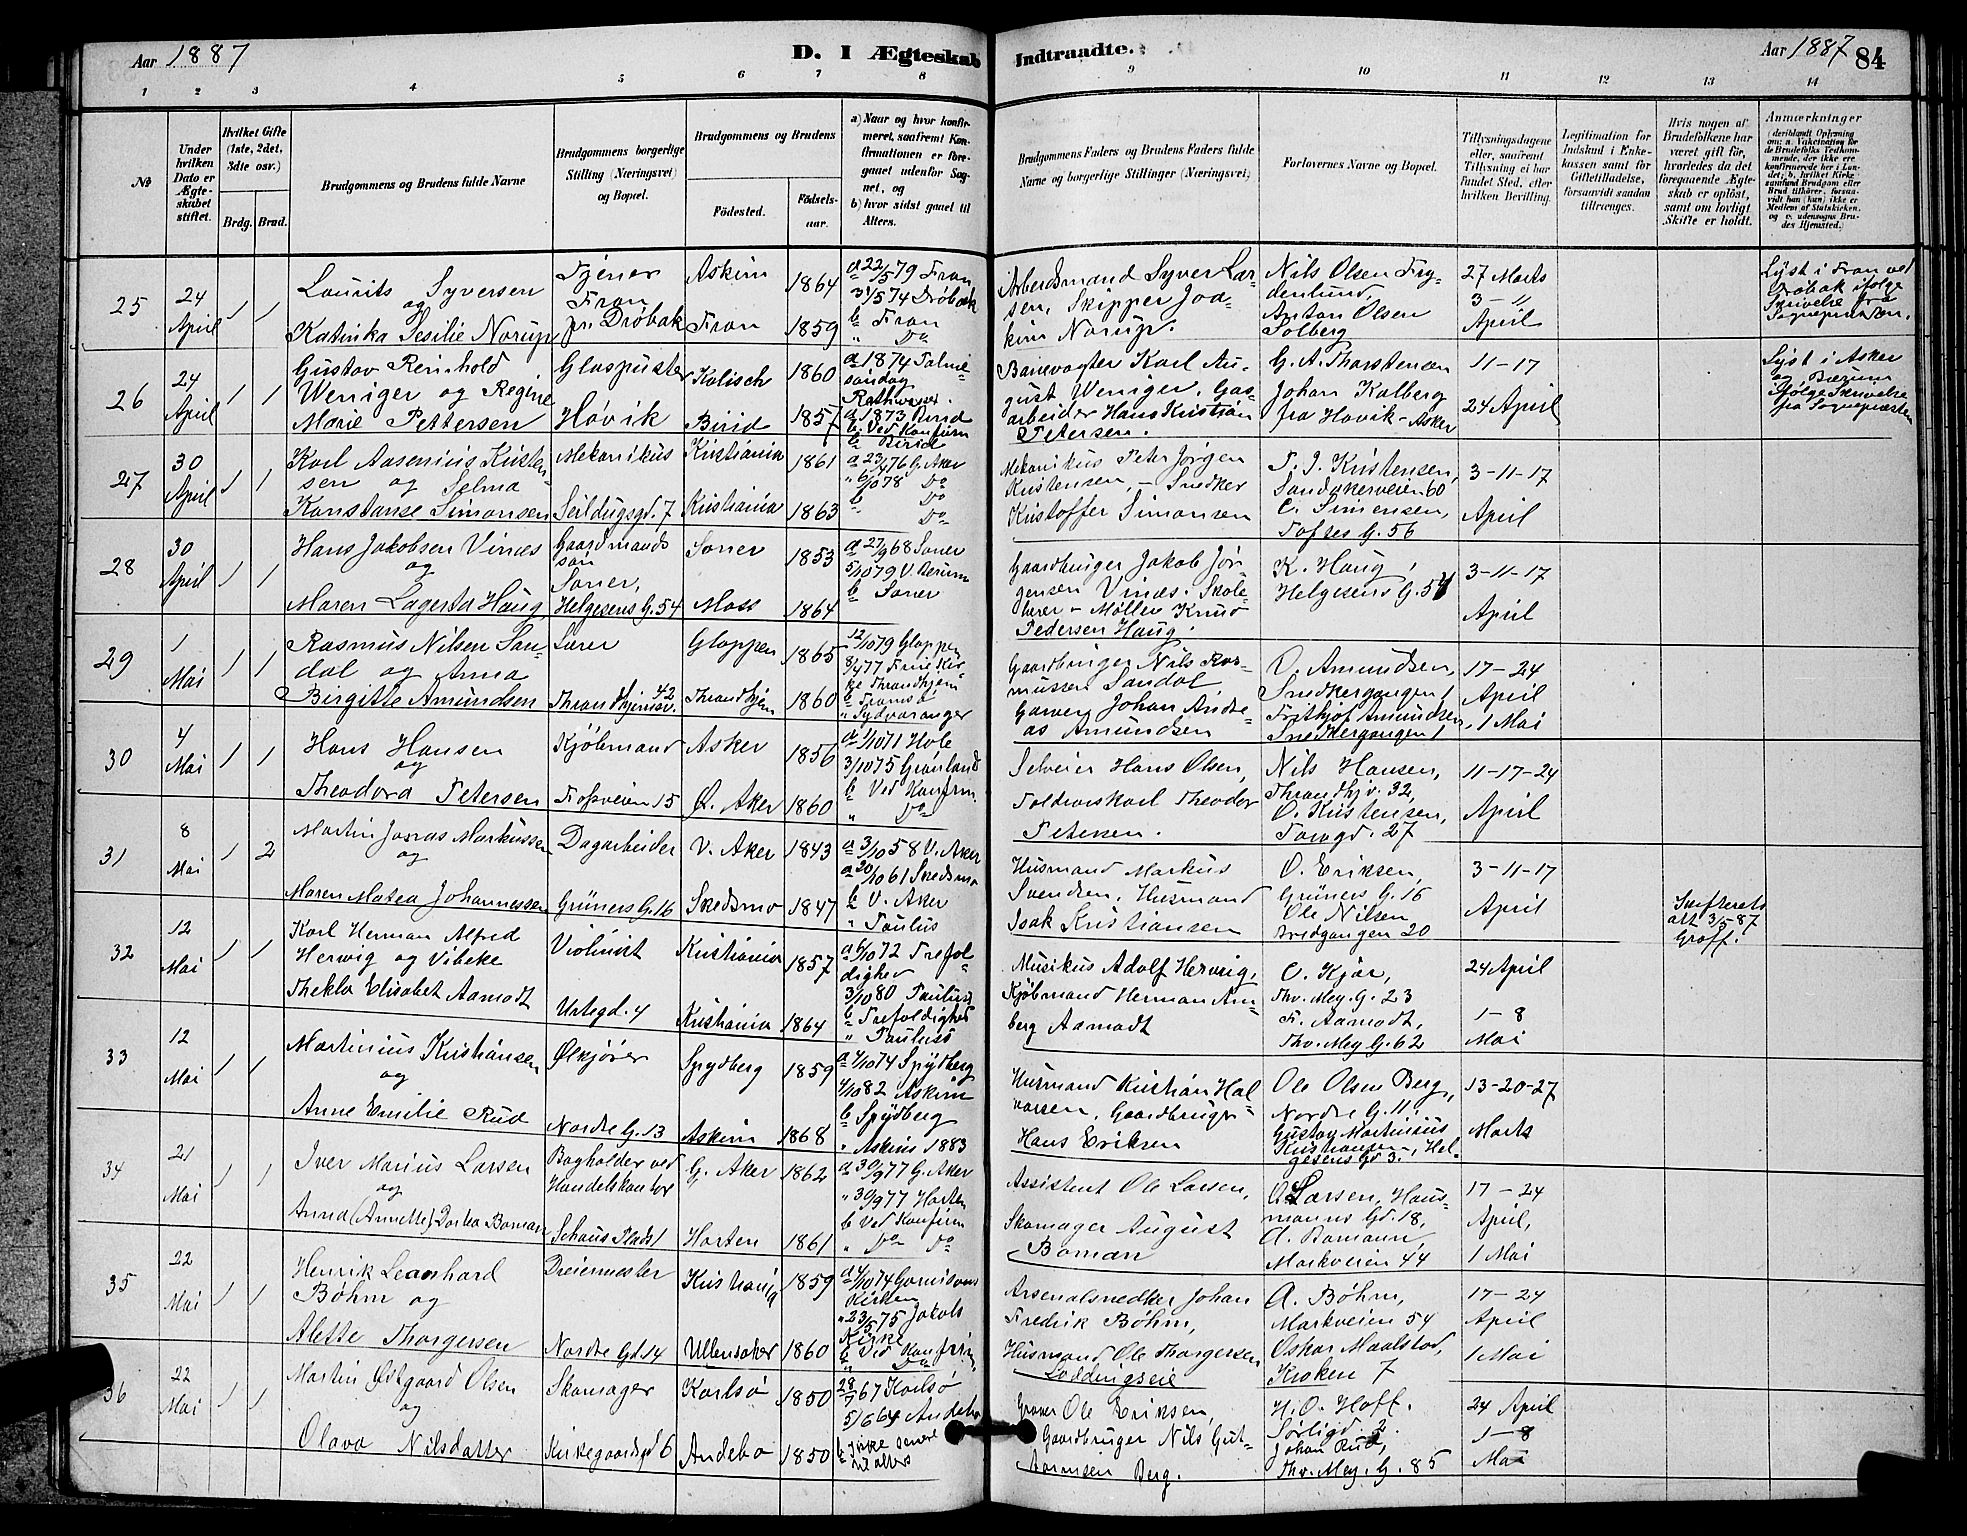 Aar 1887
D. I Ægteskab Indtraadte.
Aar 1887 84
1 2 3 4 5 6 7 8 9 10 11 12 13 14
No
Under hvilken Dato er Ægteskabet stiftet.
Hvilket Gifte (1ste, 2det, 3dte osv.)
Brdg. Brud.
Brudgommens og Brudens fulde Navne
Brudgommens borgerlige Stilling (Næringsvei) og Bopæl.
Brudgommens og Brudens
Fødested.
Fødselsaar.
a) Naar og hvor konfirmeret, saafremt Konfirmationen er foregaaet udenfor Sognet, og
b) hvor sidst gaaet til Alters.
Brudgommens Faders og Brudens Faders fulde Navne og borgerlige Stillinger (Næringsvei)
Forlovernes Navne og Bopæl.
Tillysningsdagene eller, saafremt Tillysning ei har fundet Sted, efter hvilken Bevilling.
Legitimation for Indskud i Enkekassen samt for Giftetilladelse, forsaavidt sandan tiltrænges.
Hvis nogen af Brudefolkene har været gift før, hvorledes da det foregaaende Ægteskab er opløst, samt om lovligt Skifte er holdt.
Anmærkninger
25
24 April
1 1
Laurits Syversen
og
Katinka Sesilie Norup
Tjener
Fron
pr. Drøbak
Askim 1864
Fron 1859
a 22/5 79 Fron
31/5 74 Drøbak
b Fron
" Do
Arbeidsmand Syver Larsen, Skipper Joakim Norup.
Nils Olsen Frydenlund,
Anton Olsen
Solberg
27 Marts
3 - "
April
Lyst i Fron ved
Drøbak ifølge
Skrivelse fra
Sognepræsten.
26
24 April
1 1
Gustav Reinhold
Weniger og Regine
Marie Pettersen
Glaspuster
Høvik
Kalisch 1860
Birid 1857
a 1874 Palmesøndag
a 1873 Birid
b. Ved Konfirm
b Birid
Banevogter Karl August Weniger. Gasarbeider Hans Kristian
Petersen.
G. A. Thorstensen
Johan Kalberg
fra Høvik - Asker
11-17
24 April
Lyst i Asker
og Bærum
ifølge Skrivelse
fra Sognepræsten
27
30 April
1 1
Karl Aasenius Kristensen og Selma
Konstanse Simonsen
Mekanikus
Seildugsgd. 7
Kristiania 1861
Kristiania 1863
a 23/4 76 G. Aker
" 6/10 78 Do
b Do
Do
Mekanikus Peter Jørgen
Kristensen, - Snedker
Kristoffer Simonsen
P. J. Kristensen,
Sandakerveien 60
C. Simensen,
Toftes G. 56
3-11-17
April
28
30 April
1 1
Hans Jakobsen Vinæs
og
Maren Lagerta Haug
Gaardmands
søn
Soner,
Helgesens G. 54
Soner 1853
Moss 1864
a 27/9 68 Soner
5/10 79 V. Bærum
b Soner
Gaardbruger Jakob Jørgensen Vinæs. Skolelærer - Møller Knud
Pedersen Haug.
K. Haug,
Helgesens G. 54
3-11-17
April
29
1 Mai
1 1
Rasmus Nilsen Sandal og Anna
Birgitte Amundsen
Lærer
Throndhjemsv. 42
Gloppen 1865
Throndhjem 1860
12/10 79 Gloppen
8/4 77 Frue Kirke Throndhjem
b Tromsø
" Sydvaranger
Gaardbruger Nils Rasmussen Sandal
Garver Johan Andreas Amundsen
O. Amundsen,
Snedkergangen 1
Frithjof Amundsen,
Snedkergangen 1
17-24
April
1 Mai
30
4 Mai
1 1
Hans Hansen
og
Theodora Petersen
Kjøbmand
Fossveien 15
Asker 1856
Ø. Aker 1860
a 1/10 71 Hole
3/10 75 Grønland
b Ved Konfirm.
" Do
Selveier Hans Olsen,
Toldrorskarl Theodor
Petersen.
Nils Hansen,
Throndhjv. 32,
O. Kristensen,
Torvgd. 27
11-17-24
April
31
8 Mai
1 2
Martin Jonas Markussen
og
Maren Matea Johannessen
Dagarbeider
Grüners G. 16
V. Aker 1843
Skedsmo 1847
a 3/10 58 V. Aker
a 20/10 61 Skedsmo
b V. Aker
" Paulus
Husmand Markus
Svendsen, Husmand
Isak Kristiansen
O. Eriksen,
Grüners G. 16
Ole Nilsen
Bredgangen 20
3-11-17
April
Skifterets
att 3/5 87
Groff.
32
12 Mai
1 1
Karl Herman Alfred
Herwig og Vibeke
Thekla Elisabet Aamodt
Violinist
Urtegd. 4
Kristiania 1857
Kristiania 1864
a 6/10 72 Trefoldighed
3/10 80 Paulus
b Trefoldighed
" Paulus
Musikus Adolf Herwig,
Kjøbmand Herman Amberg Aamodt
O. Kjær,
Thv. Mey. G. 23
F. Aamodt,
Thv. Mey G. 62
24 April
1-8
Mai
33
12 Mai
1 1
Martinius Kristiansen
og
Anne Emilie Rud
Ølkjører
Nordre G. 13
Spydberg 1859
Askim 1868
a 4/10 74 Spydberg
1/10 82 Askim
b Spydberg
" Askim 1883
Husmand Kristian Halvorsen, Gaardbruger
Hans Eriksen
Ole Olsen Berg,
Nordre G. 11
Gustav Martinius
Kristiansen, Helgesens Gd 3.
13-20-27
Marts
34
21 Mai
1 1
Iver Marius Larsen
og
Anna (Annette) Dortea Boman
Bogholder ved
Handelskontor
Schous Plads 1
G. Aker 1862
Horten 1861
a 30/9 77 G. Aker
" 30/9 77 Horten
b Ved Konfirm
" Do Do
Assistent Ole Larsen,
Skomager August
Boman
O. Larsen, Hausmanns Gd. 18,
A. Bomann,
Markveien 44
17-24
April,
1 Mai
35
22 Mai
1 1
Henrik Leonhard
Bøhm og
Alette Thorgersen
Dreiermester
Nordre Gd. 14
Kristiania 1859
Ullensaker 1860
a 4/10 74 Garnisons
Kirken
" 23/5 75 Jakobs
Kirke
b Ved Konfirm.
" Do
Arsenalsnedker Johan
Fredrik Bøhm,
Husmand Ole Thorgersen
Løddingseie
A. Bøhm,
Markveien 54
Oskar Maalstad,
Kroken 7
17-24
April
1 Mai
36
22 Mai
1 1
Martin Østgaard Olsen
og
Olava Nilsdatter
Skomager
Kirkegaardsgd 6
Karlsø 1850
Andebo 1850
28/7 67 Karlsø
5/6 64 Andebo
b ikke senere
til alters
Graver Ole Eriksen,
Gaardbruger Nils Guttormsen Berg.
H. O. Hoff.
Sørligd. 2.
Johan Rud,
Thv. Mey. G. 85
24 April
1-8
Mai